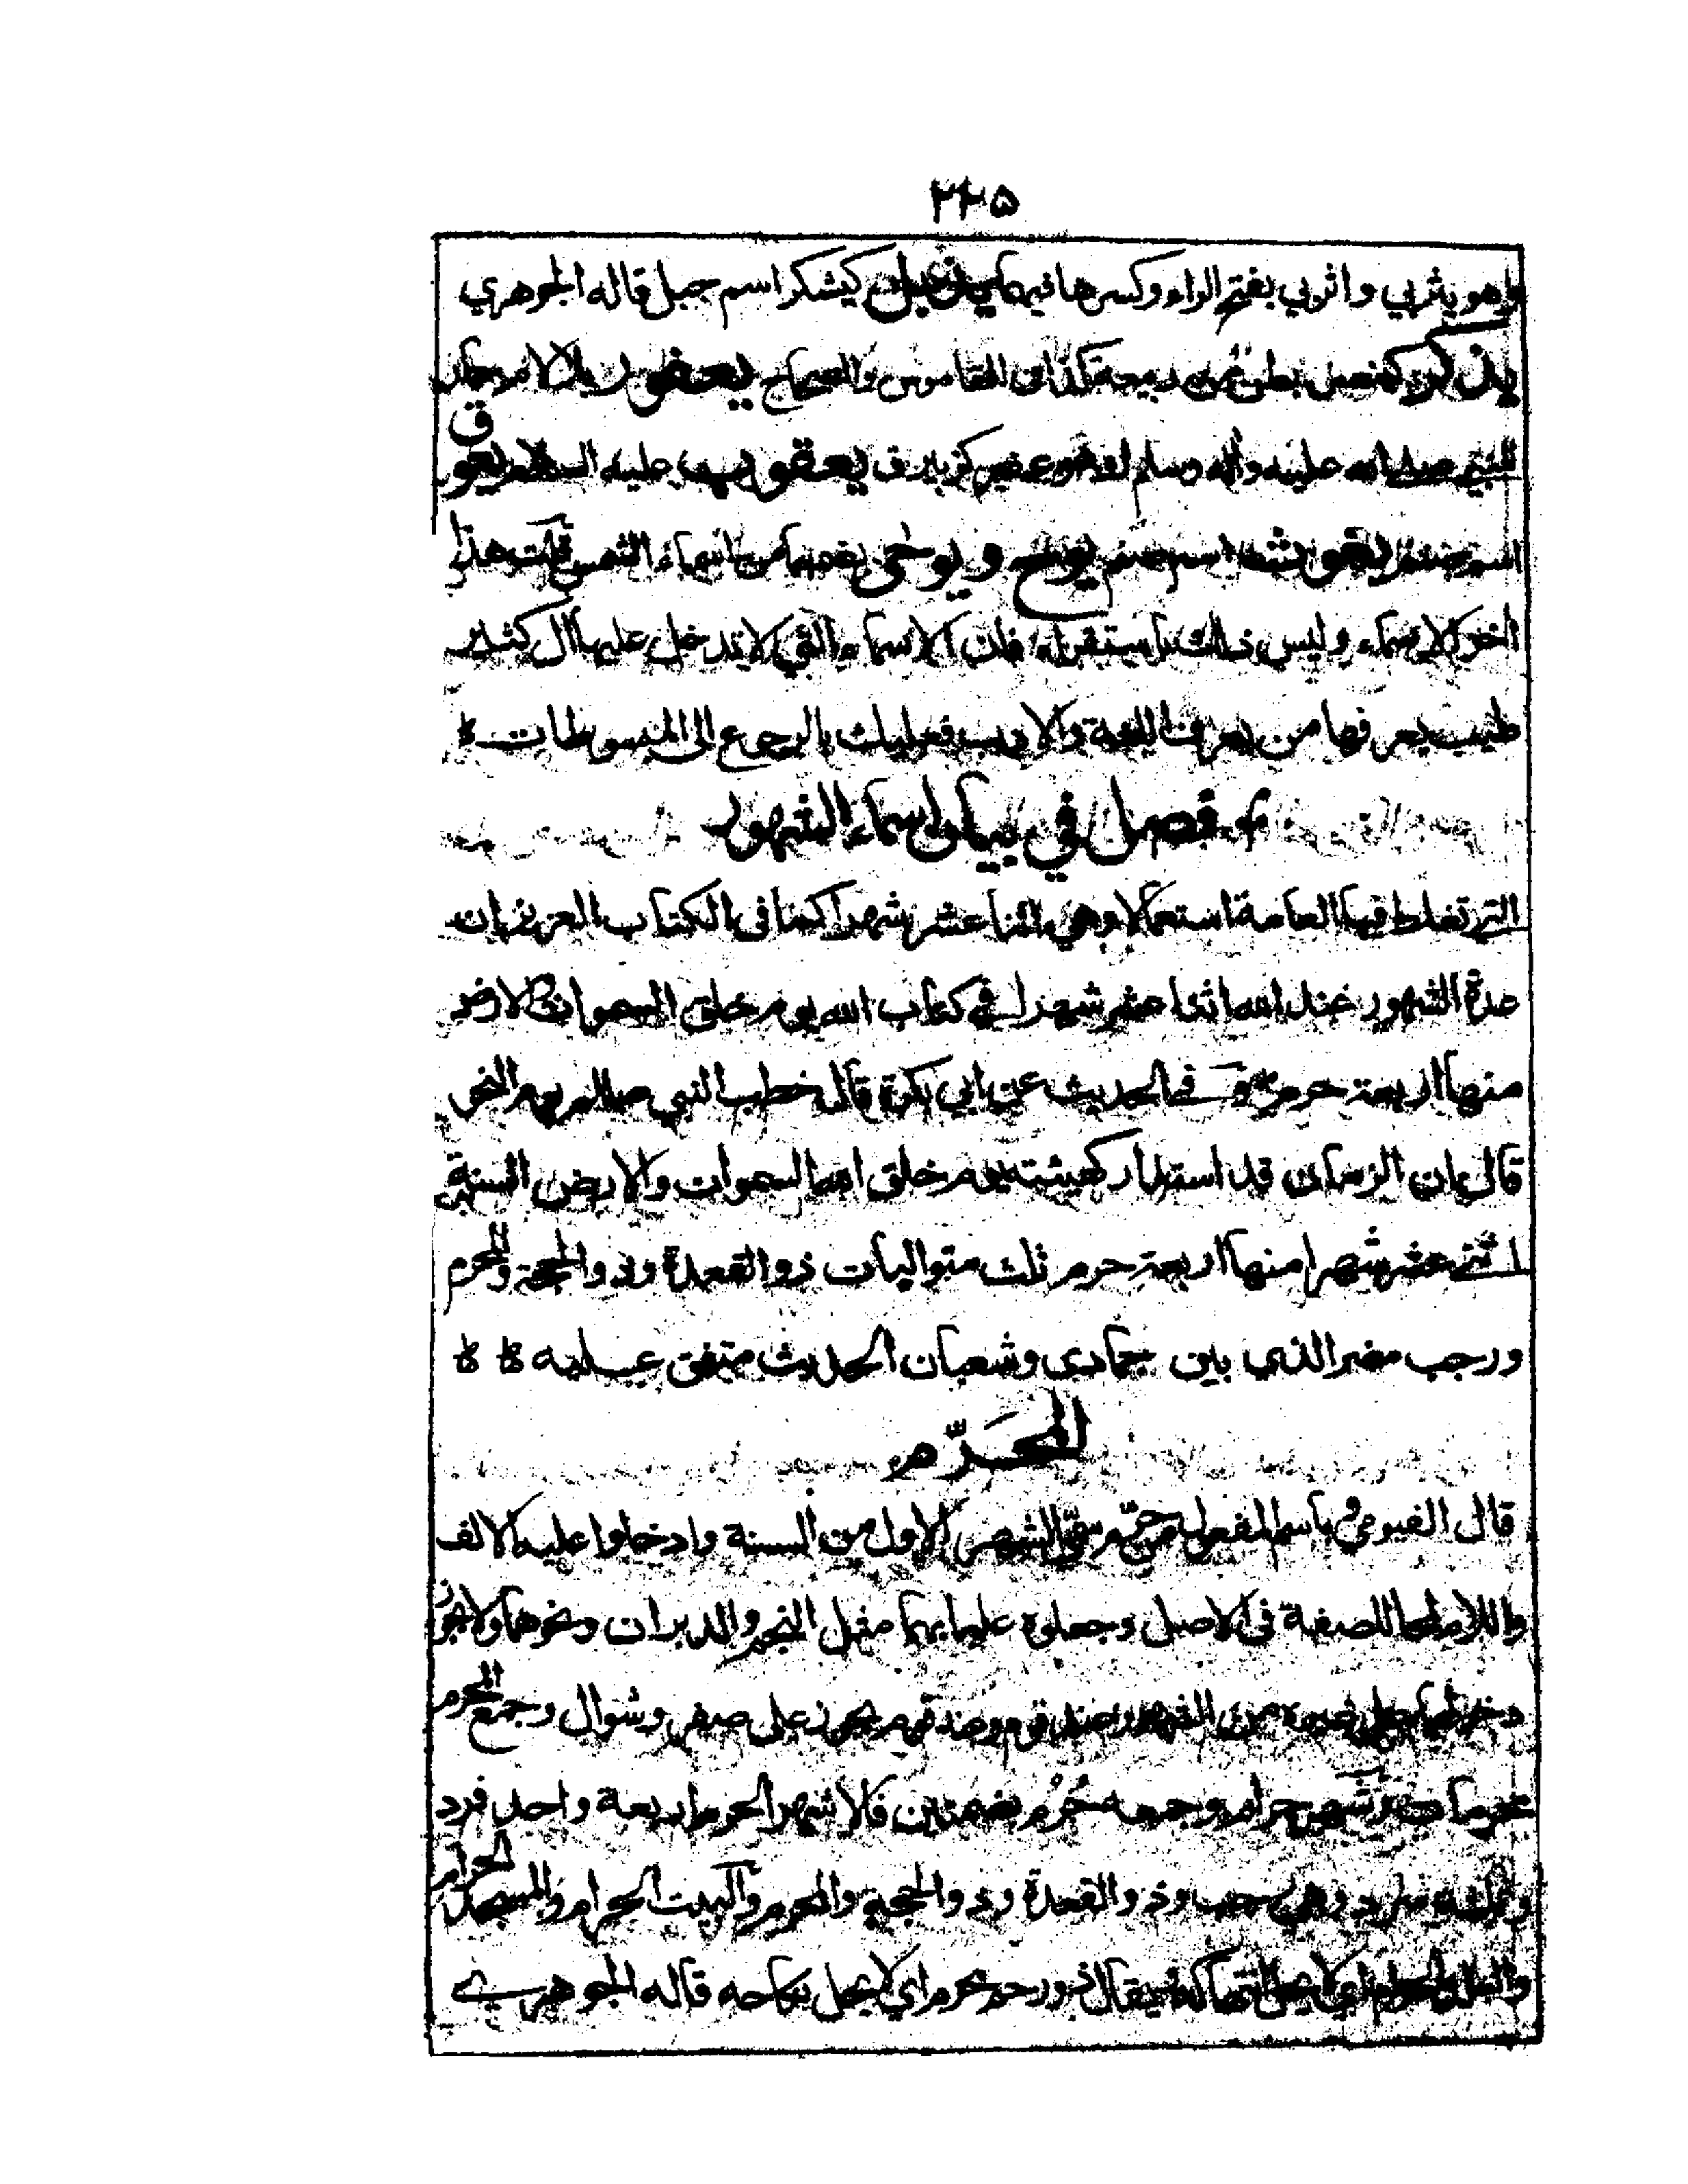 ٢٢٥
وهو يثربي واثربي بفتح الراء وكسرها فيهما يذبل كيشكر اسم جبل قاله الجوهري
يذكر كينصر بطن من ربيعة كذا في القاموس والصحاح يعفور بلا لام حمار
للنبي صلى الله عليه وآله وسلم او هو عفير كزبير ف يعقوب عليه السلام يعوق
اسم صنم يغوث اسم صنم يوح و يوحى بضمهما من اسماء الشمس قلت هذا
اخر الاسماء وليس ذلك باستقراء فان الاسماء التي لا تدخل عليها ال كثير
طيب يعرفها من يعرف اللغة والادب فعليك بالرجوع الى المبسوطات ؞
فصل في بيان اسماء الشهور
التي تغلط فيها العامة استعمالا وهي اثنا عشر شهرا كما في الكتاب العزيز ان
عدة الشهور عند الله اثنا عشر شهرا في كتاب الله يوم خلق السموات والارض
منها اربعة حرم وفي الحديث عن ابي بكرة قال خطب النبي صللم يوم النحر
قال ان الزمان قد استدار كهيئته يوم خلق الله السموات والارض السنة
اثني عشر شهرا منها اربعة حرم ثلث متواليات ذو القعدة وذو الحجة والمحرم
ورجب مضر الذي بين جمادى وشعبان الحديث متفق عليه ؞ ؞
المحَرّم
قال الفيومي باسم المفعول من حرّم سمّي الشهر الاول من السنة وادخلوا عليه الالف
واللام لمحا للصفة في الاصل وجعلوه علما بهما مثل النجم والدبران ونحوهما ولا يجوز
دخولهما على غيره من الشهور عند قوم وعند قوم يجوز على صفر وشوال وجمع المحرم
محرمات وشهر حرام وجمعه حُرُم بضمتين فالاشهر الحرم اربعة واحد فرد
وثلثة سرد وهي رجب وذو القعدة وذو الحجة والمحرم والبيت الحرام والمسجد الحرام
والبلد الحرام اي لا يحل انتهاكه يقال ذو رحم محرم اي لا يحل نكاحه قاله الجوهري